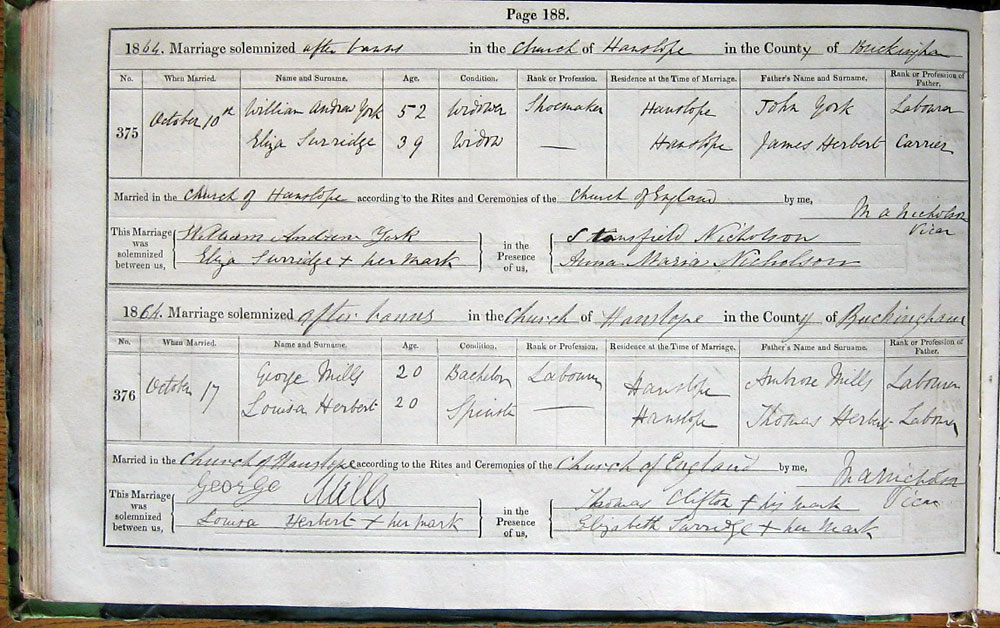 Page 188.
1864. Marriage solemnized after banns in the Church of Hanslope in the County of Buckingham
No. When Married. Name and Surname. Age. Condition. Rank or Profession. Residence at the Time of Marriage. Father's Name and Surname. Rank or Profession of Father.
375 October 10th William Andrew York 52 Widower Shoemaker Hanslope John York Labourer
Eliza Surridge 39 Widow — Hanslope James Herbert Carrier
Married in the Church of Hanslope according to the Rites and Ceremonies of the Church of England by me, M A Nicholson
Vicar
This Marriage was solemnized between us, William Andrew York in the Presence of us, Stansfield Nicholson
Eliza Surridge + her mark Anna Maria Nicholson
1864. Marriage solemnized after banns in the Church of Hanslope in the County of Buckingham
No. When Married. Name and Surname. Age. Condition. Rank or Profession. Residence at the Time of Marriage. Father's Name and Surname. Rank or Profession of Father.
376 October 17 George Mills 20 Bachelor Labourer Hanslope Ambrose Mills Labourer
Louisa Herbert 20 Spinster — Hanslope Thomas Herbert Labourer
Married in the Church of Hanslope according to the Rites and Ceremonies of the Church of England by me, M A Nicholson
Vicar
This Marriage was solemnized between us, George Mills in the Presence of us, Thomas Clifton + his mark
Louisa Herbert + her mark Elizabeth Surridge + her mark